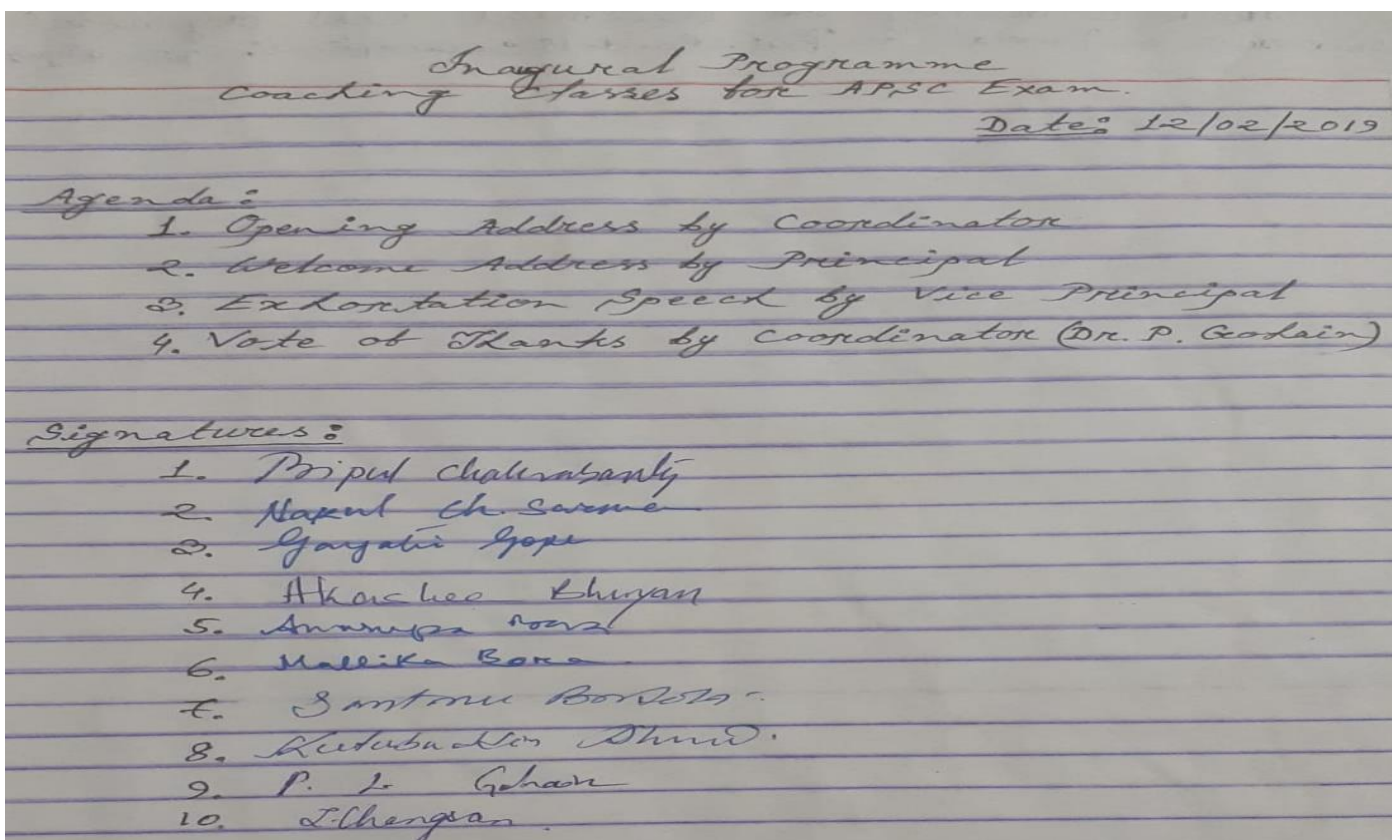 Inaugural Programme
Coaching Classes for APSC Exam.
Date: 12/02/2019
Agenda:
1. Opening Address by Coordinator
2. Welcome Address by Principal
3. Exhortation Speech by Vice Principal
4. Vote of Thanks by Coordinator (Dr. P. Gohain)
Signatures:
1. Bipul Chakrabarty
2. Nakul Ch. Sarma
3. Gayatri Gope
4. Bhuyan
5. Anurupa
6. Mallika Bora
7. Santonu
8. Kutubuddin
9. P. L. Gohain
10.